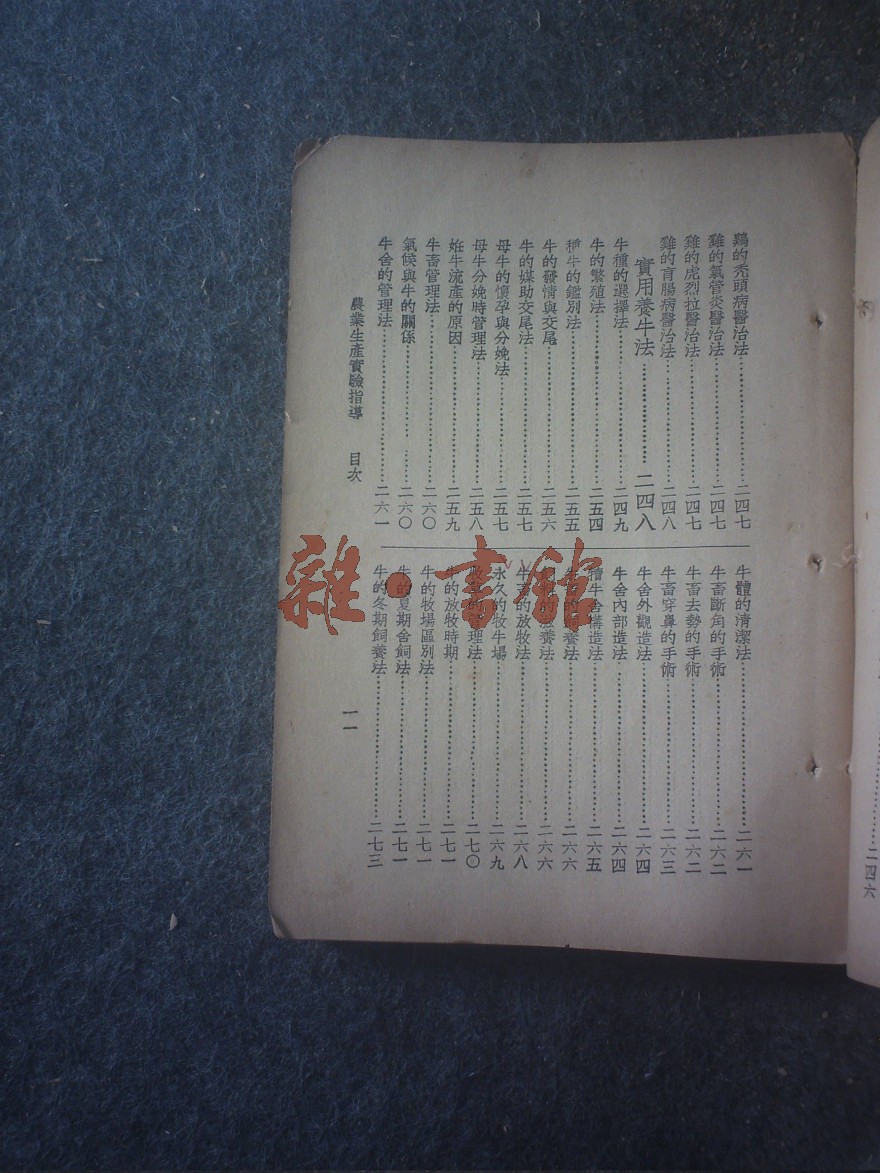 鷄的禿頭病醫治法…………二四七
雞的氣管炎醫治法…………二四七
雞的虎烈拉醫治法…………二四七
雞的盲腸病醫治法…………二四八
實用養牛法…………二四八
牛種的選擇法…………二四九
牛的繁殖法…………二五四
種牛的鑑別法…………二五五
牛的發情與交尾…………二五六
牛的媒助交尾法…………二五七
母牛的懷孕與分娩法…………二五七
母牛分娩時管理法…………二五八
姙牛流產的原因…………二五九
牛畜管理法…………二六〇
氣候與牛的關係…………二六〇
牛舍的管理法…………二六一
牛體的清潔法…………二六一
牛畜斷角的手術…………二六二
牛畜去勢的手術…………二六二
牛畜穿鼻的手術…………二六三
牛舍外觀造法…………二六四
牛舍內部造法…………二六四
犢牛舍構造法…………二六五
養法…………二六六
放養法…………二六六
牛畜的放牧法…………二六八
永久的牧牛場…………二六九
理法…………二七〇
牛的放牧時期…………二七一
牛的牧場區別法…………二七一
牛的夏期舍飼法…………二七一
牛的冬期飼養法…………二七三
農業生產實驗指導 目次
一一
二四六
雜·書館